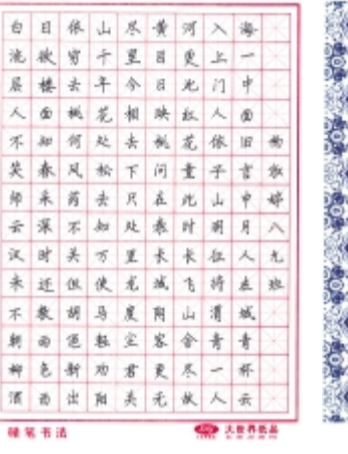 白日依山尽黄河入海
流欲穷千里目更上一
层楼去年今日此门中
人面桃花相映红人面
不知何处去桃花依旧杨
笑春风松下问童子言
师采药去只在此山中婷
云深不知处秦时明月八
汉时关万里长长征人九
未还但使龙城飞将在班
不教胡马度阴山渭城
朝雨浥轻尘客舍青青
柳色新劝君更尽一杯
酒西出阳关无故人云
硬笔书法 大世界纸品